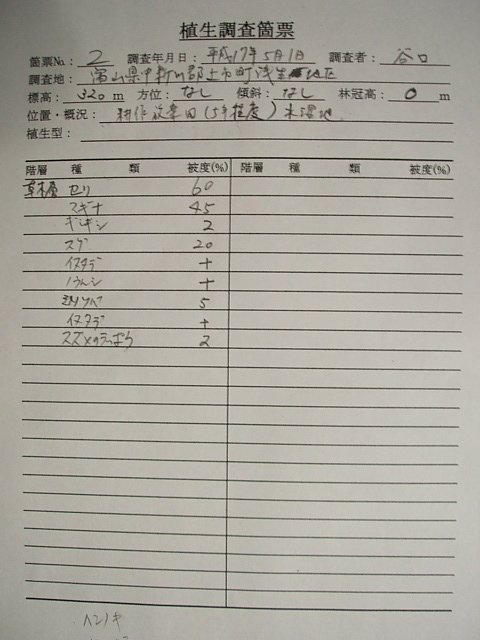 植生調査箇票
箇票No.: 2 調査年月日: 平成17年5月1日 調査者: 谷口
調査地: 富山県中新川郡上市町浅生地区
標高: 320 m 方位: なし 傾斜: なし 林冠高: 0 m
位置・概況: 耕作放棄田(5年程度) 湿地
植生型:
階層 種 類 被度(%) 階層 種 類 被度(%)
草本層 セリ 60
スギナ 45
ギシギシ 2
スゲ 20
イヌタデ +
+
5
イヌタデ +
スズメノテッポウ 2
ハンノキ